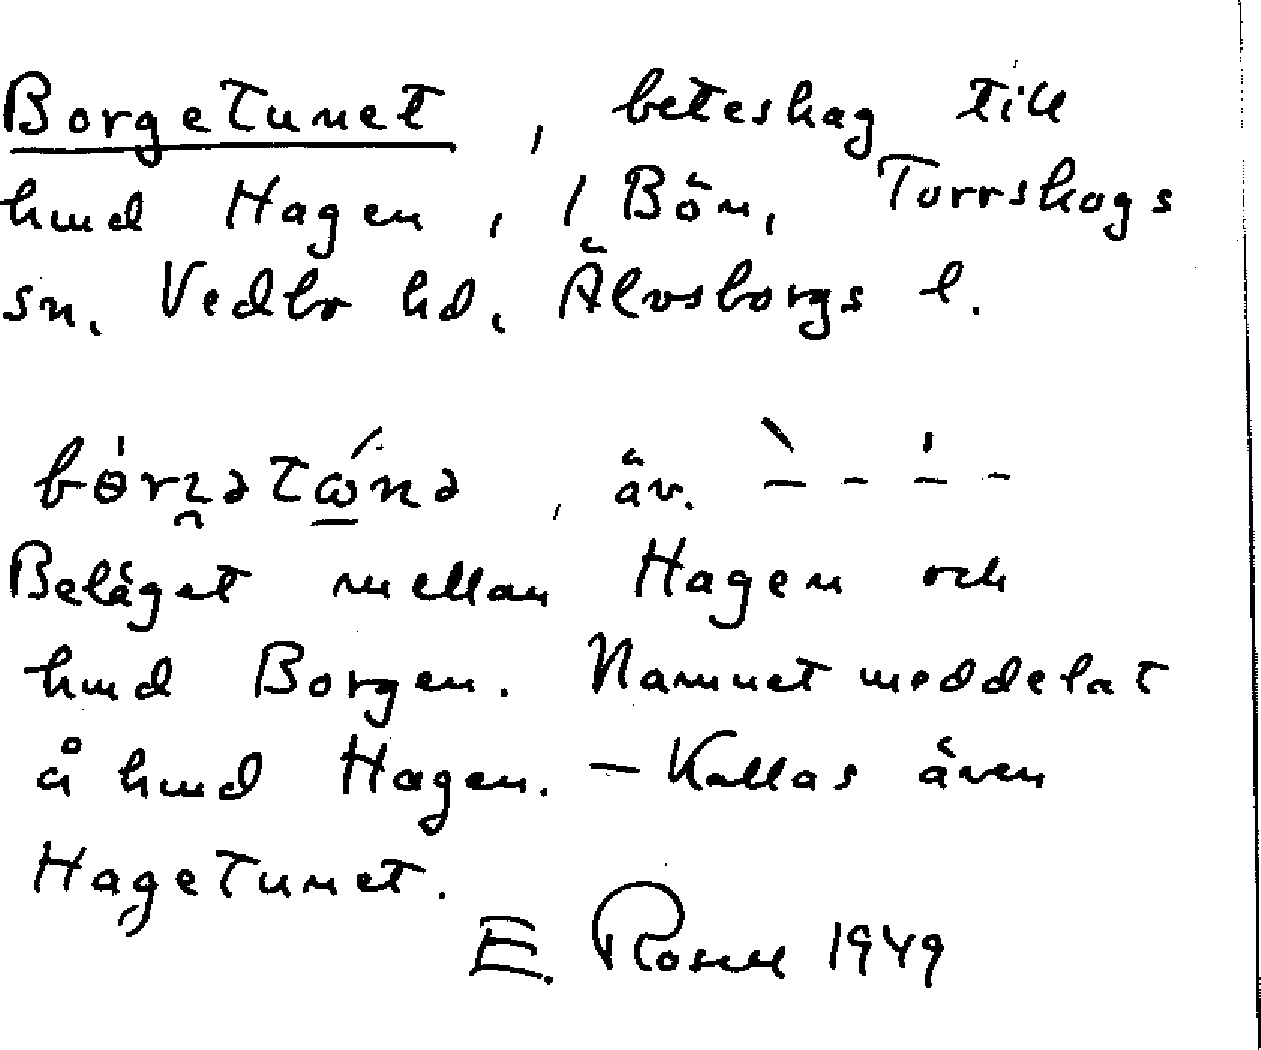 Borgetunet, beteshag till
hmd Hagen, 1 Bön, Torrskogs
sn, Vedbo hd, Älvsborgs l.
, äv.
Beläget mellan Hagen och
hmd Borgen. Namnet meddelat
å hmd Hagen. – Kallas även
Hagetunet.
E. Rosell 1949